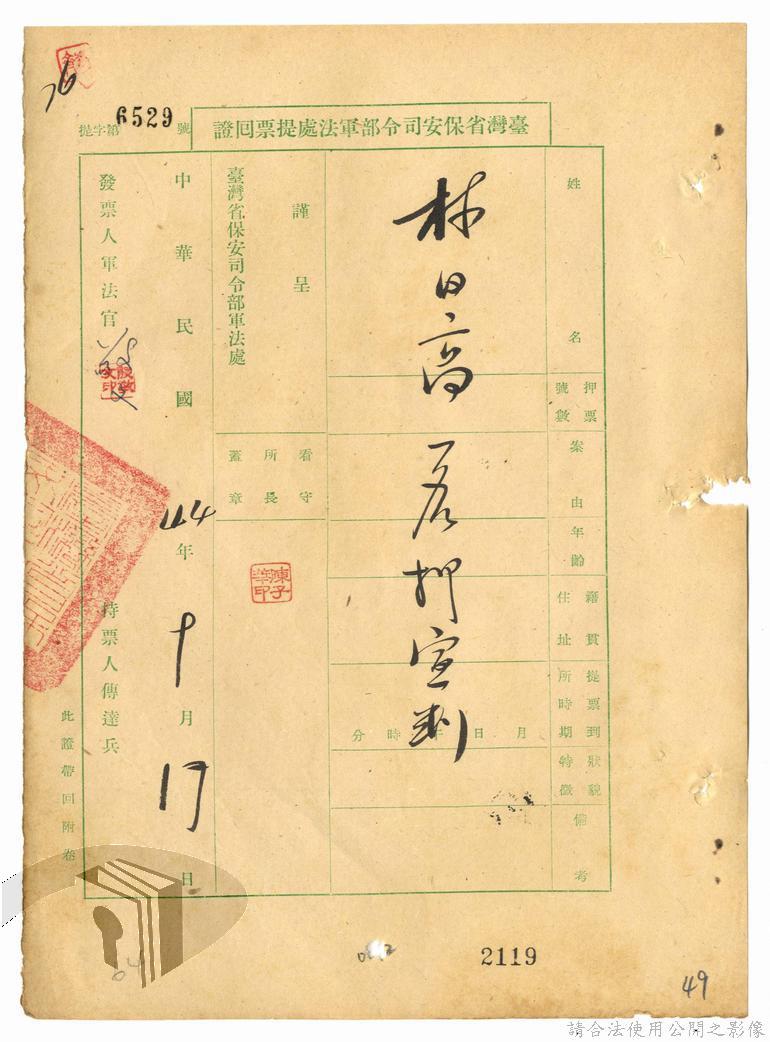 提字第6529號
臺灣省保安司令部軍法處提票回證
姓名
林日高
押票號數
案由
年齡
籍貫住址
提票到所時期
月日午時分
狀貌特徵
備考
宣判
謹呈
臺灣省保安司令部軍法處
看守所長蓋章
陳子華印
中華民國44年十月17日
發票人軍法官
持票人傳達兵
此證帶回附卷
76
2119
49
請合法使用公開之影像